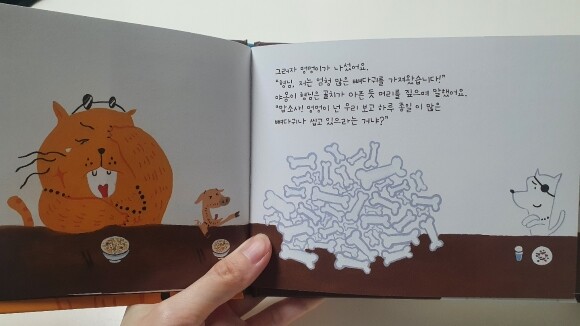 그러자 멍멍이가 나섰어요.
"형님, 저는 엄청 많은 뼈다귀를 가져왔습니다!"
야옹이 형님은 골치가 아픈 듯 머리를 짚으며 말했어요.
"맙소사! 멍멍이 넌 우리 보고 하루 종일 이 많은
뼈다귀나 씹고 있으라는 거냐?"